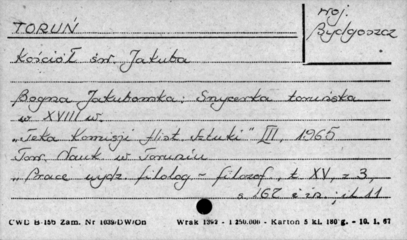 TORUŃ
woj.
Bydgoszcz
Kościół św. Jakuba
Bogna Jakubowska: Snycerka toruńska
w XVIII w.
"Teka Komisji Hist. Sztuki" III, 1965
Tow. Nauk. w Toruniu
"Prace wydz. filolog - filozof, t. XV, z 3,
s. 162 i in; il. 11
CWD B-155 Zam. Nr 1039/DW/On Wrak 1397 - 1 250.000 - Karton 5 kl. 180 g. - 10. 1. 67